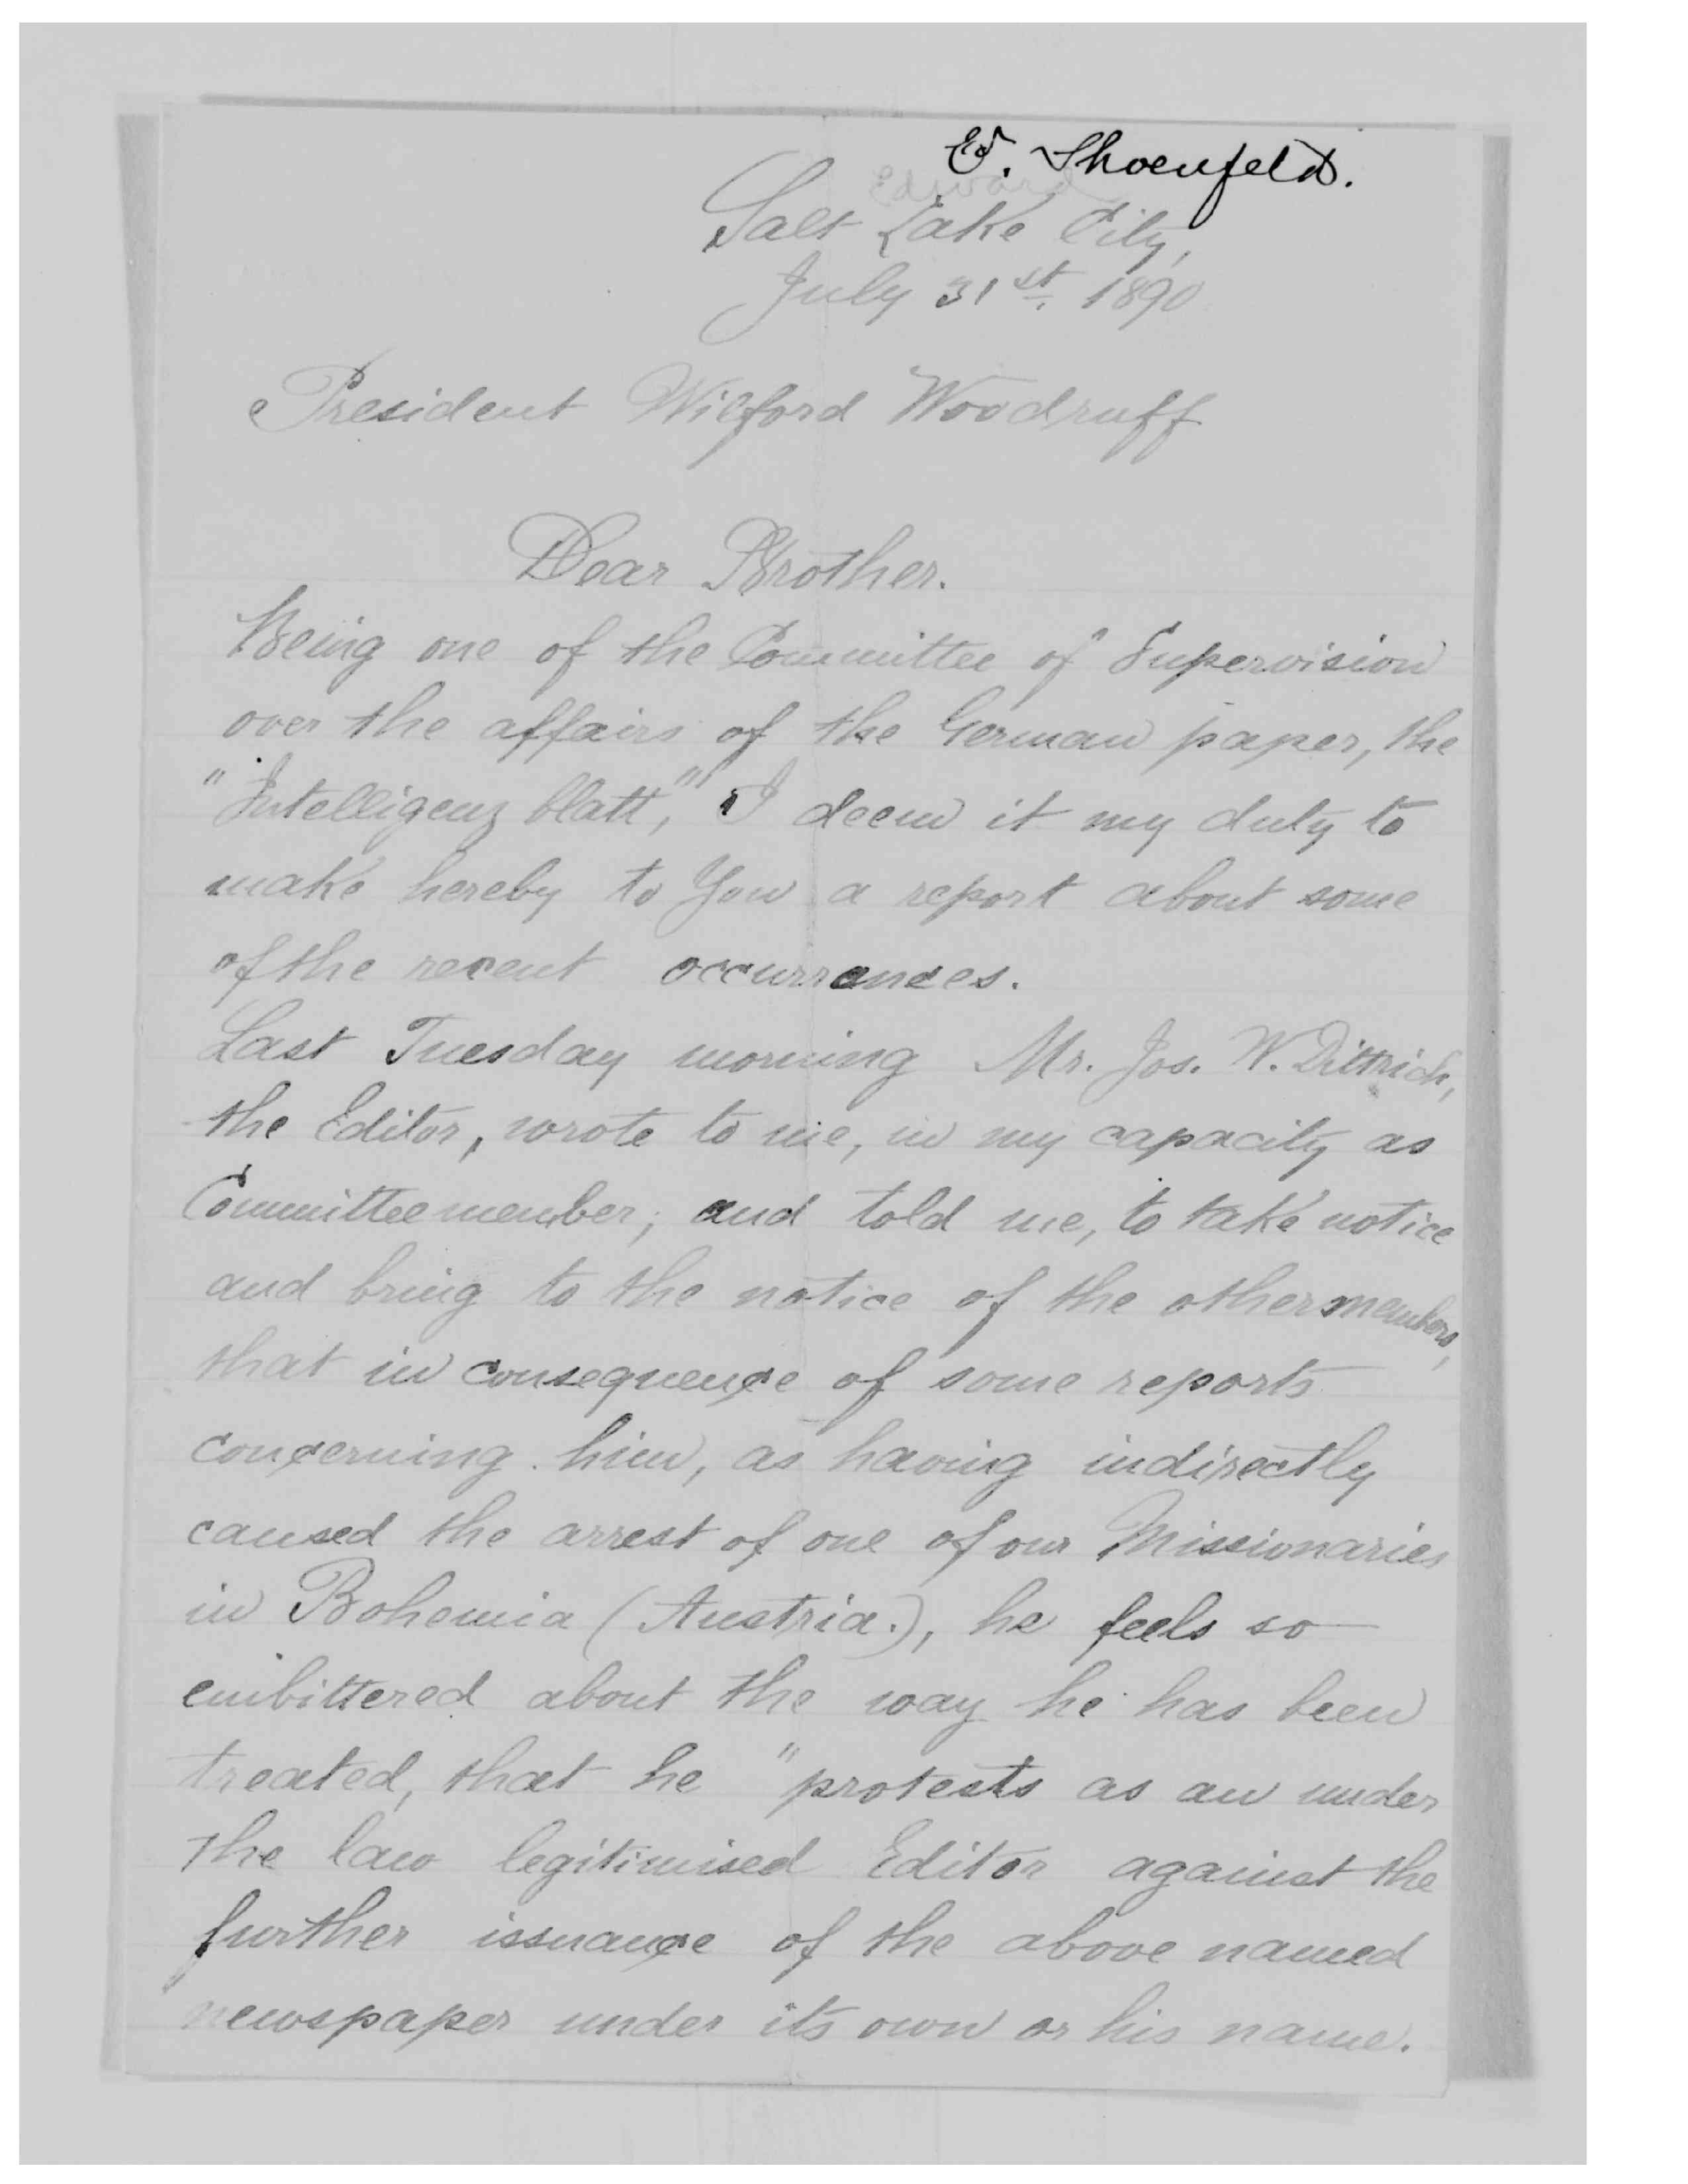 Ed. Shoenfeld.
Edward
Salt Lake City,
July 31st. 1890
President Wilford Woodruff
Dear Brother.
Being one of the Committee of Supervision
over the affairs of the German paper, the
"Intelligenz blatt," I deem it my duty to
make hereby to You a report about some
of the recent occurrances.
Last Tuesday morning Mr. Jos. W. Dittrich,
the Editor, wrote to me, in my capacity as
Committeemember, and told me, to take notice
and bring to the notice of the other members,
that in consequence of some reports
concerning him, as having indirectly
caused the arrest of one of our Missionaries
in Bohemia (Austria.), he feels so
embittered about the way he has been
treated, that he "protests as an under
the law legitimised Editor against the
further issuance of the above named
newspaper under its own or his name.